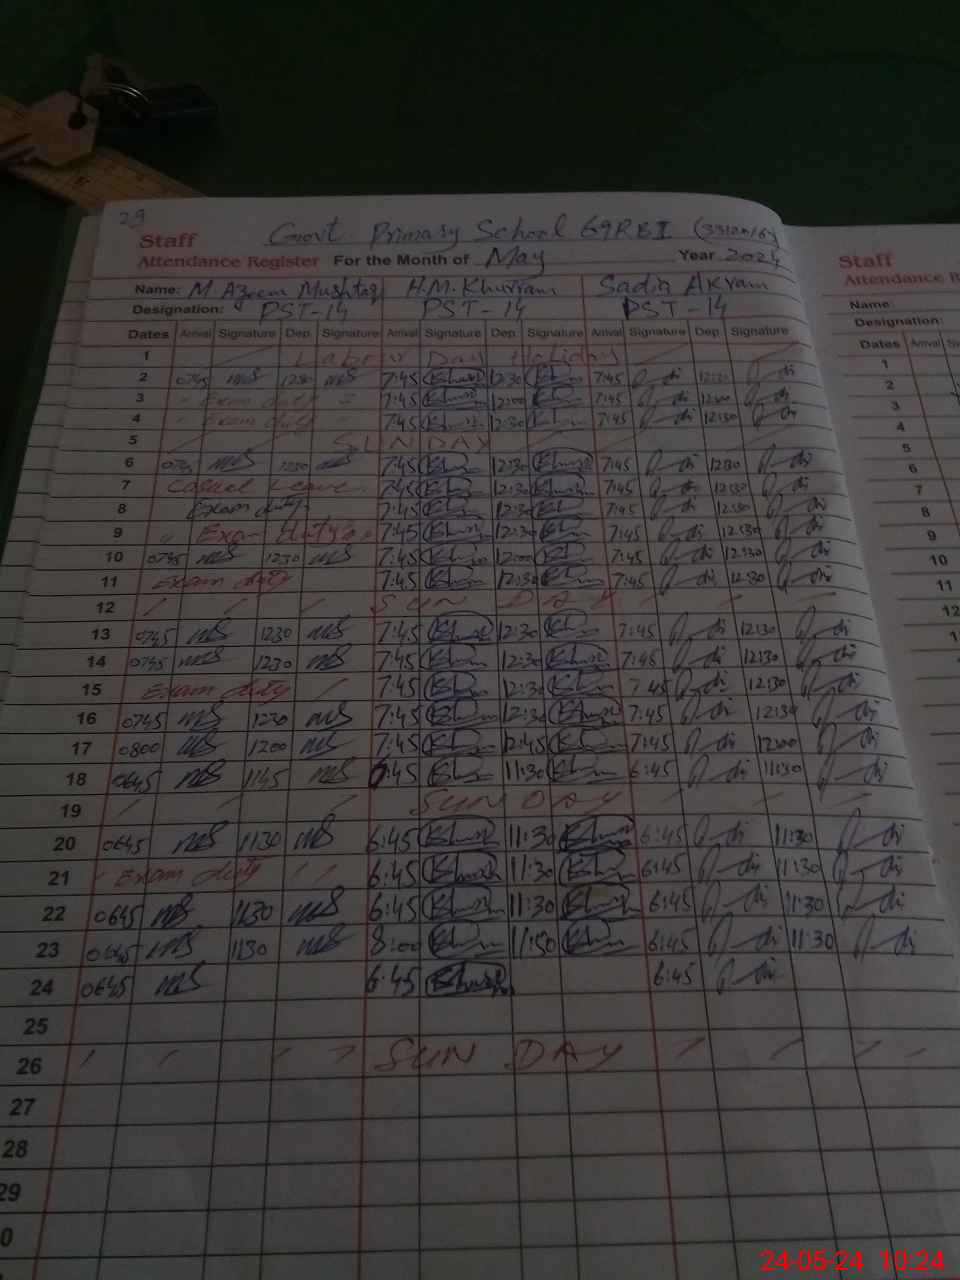 29
Staff Govt. Primary School 69RBI
Attendance Register For the Month of May Year 2024
Name: M Azeem Mushtaq H.M. Khurram Sadia Akram
Designation: PST-14 PST-14 PST-14
Dates Arrival Signature Dep. Signature Arrival Signature Dep. Signature Arrival Signature Dep. Signature
1 Labour Day Holiday
2 0745 1230 7:45 12:30 7:45 12:30
3 Exam duty 7:45 12:00 7:45 12:00
4 Exam duty 7:45 12:30 7:45 12:30
5 SUNDAY
6 0745 1230 7:45 12:30 7:45 1230
7 Casual Leave 7:45 12:30 7:45 12:30
8 Exam duty 7:45 12:30 7:45 12:30
9 Exam duty 7:45 12:30 7:45 12:30
10 0745 1230 7:45 12:00 7:45 12:30
11 Exam duty 7:45 12:30 7:45 12:30
12 SUN DAY
13 0745 1230 7:45 12:30 7:45 12:30
14 0745 1230 7:45 12:30 7:45 12:30
15 Exam duty 7:45 12:30 7:45 12:30
16 0745 1230 7:45 12:30 7:45 12:30
17 0800 1200 7:45 12:45 7:45 12:00
18 0645 1145 6:45 11:30 6:45 11:30
19 SUN DAY
20 0645 1130 6:45 11:30 6:45 11:30
21 Exam duty 6:45 11:30 6:45 11:30
22 0645 1130 6:45 11:30 6:45 11:30
23 0645 1130 8:00 11:30 6:45 11:30
24 0645 6:45 6:45
25
26 SUN DAY
27
28
29
Staff
Attendance R
Name:
Designation:
Dates Arrival
1
2
3
4
5
6
7
8
9
10
11
12
24-05-24 10:24